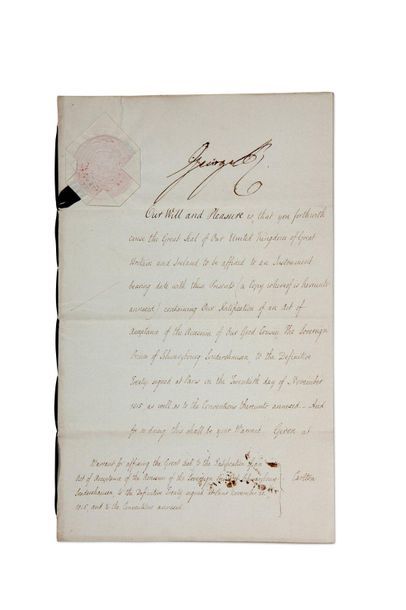 George R
Our Will and Pleasure is, that you forthwith
cause the Great Seal of Our United Kingdom of Great
Britain and Ireland to be affixed to an Instrument
bearing date with these Presents (a Copy whereof is hereunto
annexed) containing Our Ratification of an Act of
Acceptance of the Accession of Our Good Cousin The Sovereign
Prince of Schwarzbourg Sondershausen to the Definitive
Treaty signed at Paris on the Twentieth day of November
1815, as well as to the Conventions thereunto annexed. And
for so doing this shall be your Warrant. Given at
Warrant for affixing the Great Seal to the Ratification of an
Act of Acceptance of the Accession of the Sovereign Schwarzbourg
Carlton
Sondershausen to the Definitive Treaty signed November 20,
1815, and to the Conventions annexed.